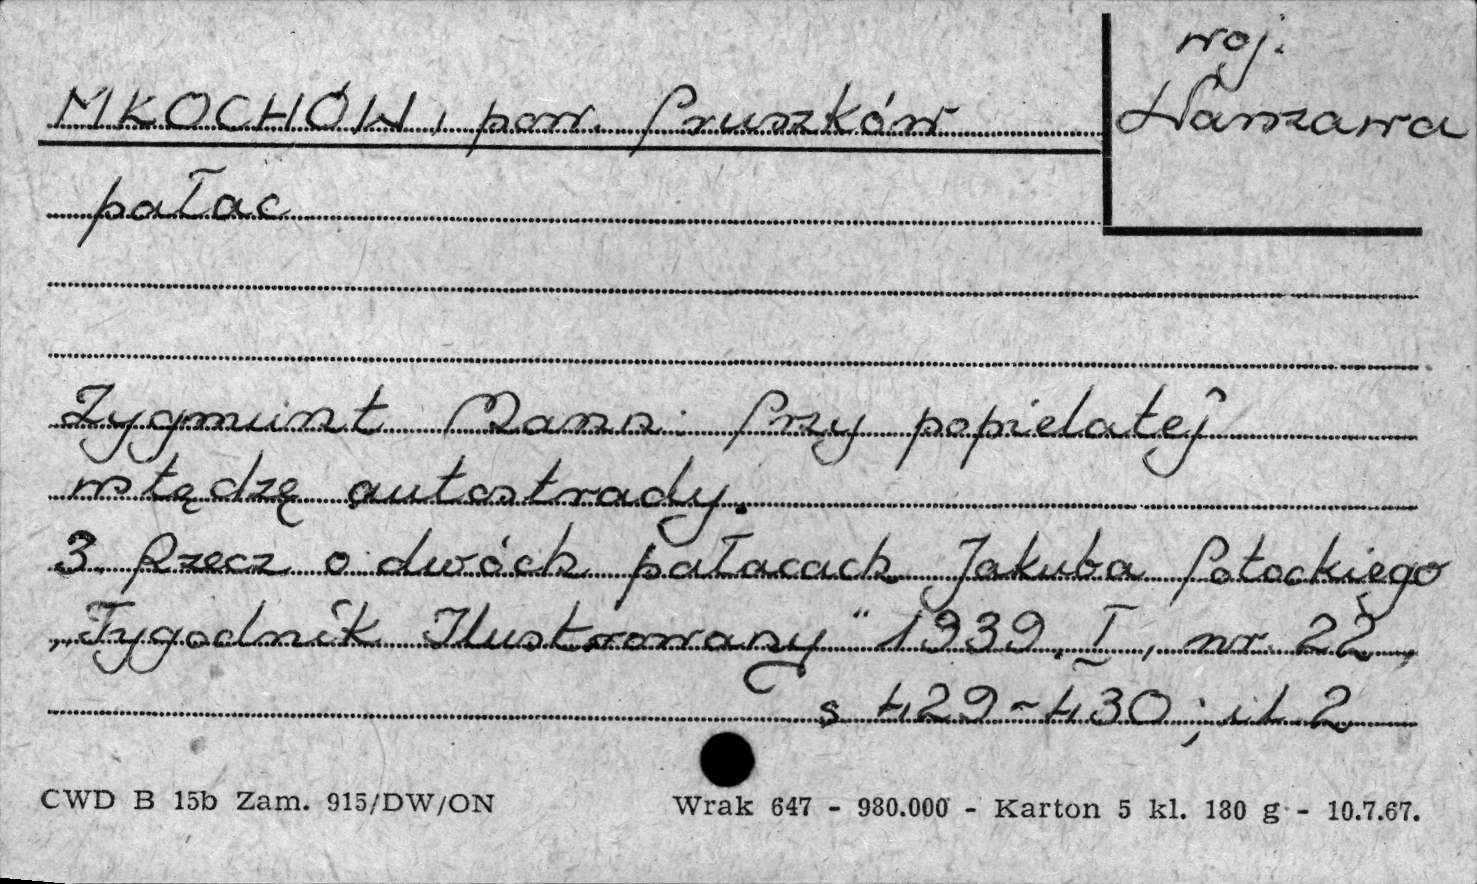 woj.
Warszawa
MKOCHÓW, pow. Pruszków
pałac
Zygmunt Mann: Przy popielatej
wstędzę autostrady.
3. Rzecz o dwóch pałacach Jakuba Potockiego
„Tygodnik Ilustrowany" 1939. I, nr. 22,
s 429-430; il. 2
CWD B 15b Zam. 915/DW/ON
Wrak 647 - 980.000 - Karton 5 kl. 180 g - 10.7.67.